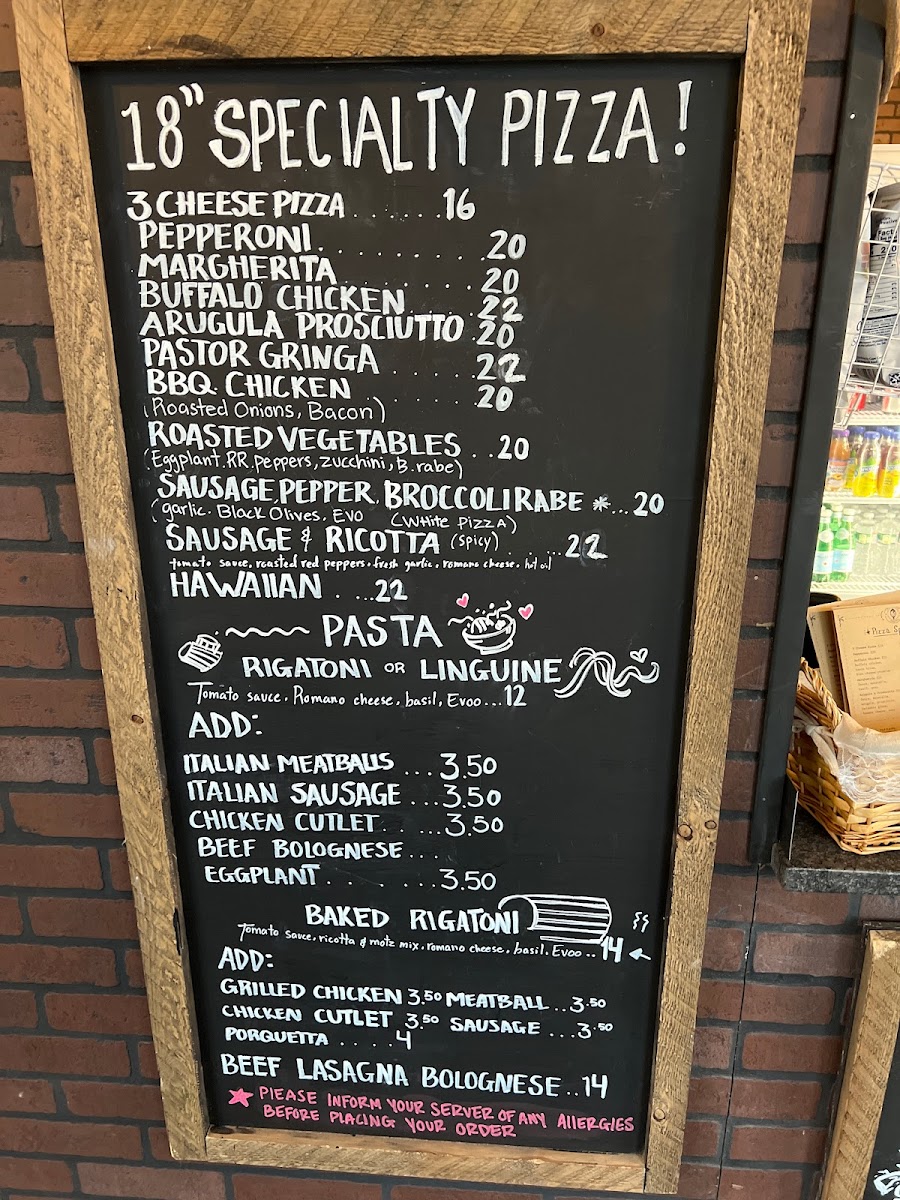 18" SPECIALTY PIZZA!
3 CHEESE PIZZA.......16
PEPPERONI..........20
MARGHERITA..........20
BUFFALO CHICKEN.....22
ARUGULA PROSCIUTTO.20
PASTOR GRINGA......22
BBQ. CHICKEN.......20
(Roasted Onions, Bacon)
ROASTED VEGETABLES...20
(Eggplant. RR. peppers, zucchini, B. rabe)
SAUSAGE, PEPPER, BROCCOLI RABE *...20
(garlic. Black Olives, EVO (White Pizza)
SAUSAGE & RICOTTA (spicy).....22
tomato sauce, roasted red peppers, fresh garlic, romano cheese, hot oil
HAWAIIAN....22
PASTA
RIGATONI OR LINGUINE
Tomato sauce, Romano cheese, basil, Evoo...12
ADD:
ITALIAN MEATBALLS ...3.50
ITALIAN SAUSAGE ...3.50
CHICKEN CUTLET.....3.50
BEEF BOLOGNESE...
EGGPLANT......3.50
BAKED RIGATONI
Tomato sauce, ricotta & motz mix, romano cheese, basil, Evoo..14
ADD:
GRILLED CHICKEN 3.50 MEATBALL..3.50
CHICKEN CUTLET 3.50 SAUSAGE...3.50
PORQUETTA.....4
BEEF LASAGNA BOLOGNESE..14
PLEASE INFORM YOUR SERVER OF ANY AllERGIES
BEFORE PLACING YOUR ORDER